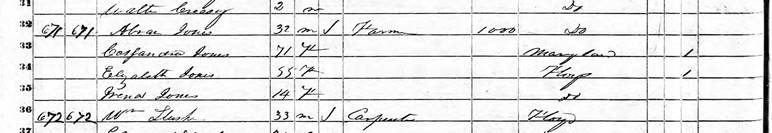 31 Walter Creasy 2 m Do
32 671 671 Abram Jones 32 m Farm 1000 Do
33 Cassandra Jones 71 F Maryland 1
34 Elizabeth Jones 55 F Floyd 1
35 Jones 14 F Do
36 672 672 Wm Flush 33 m Carpenter Floyd
37